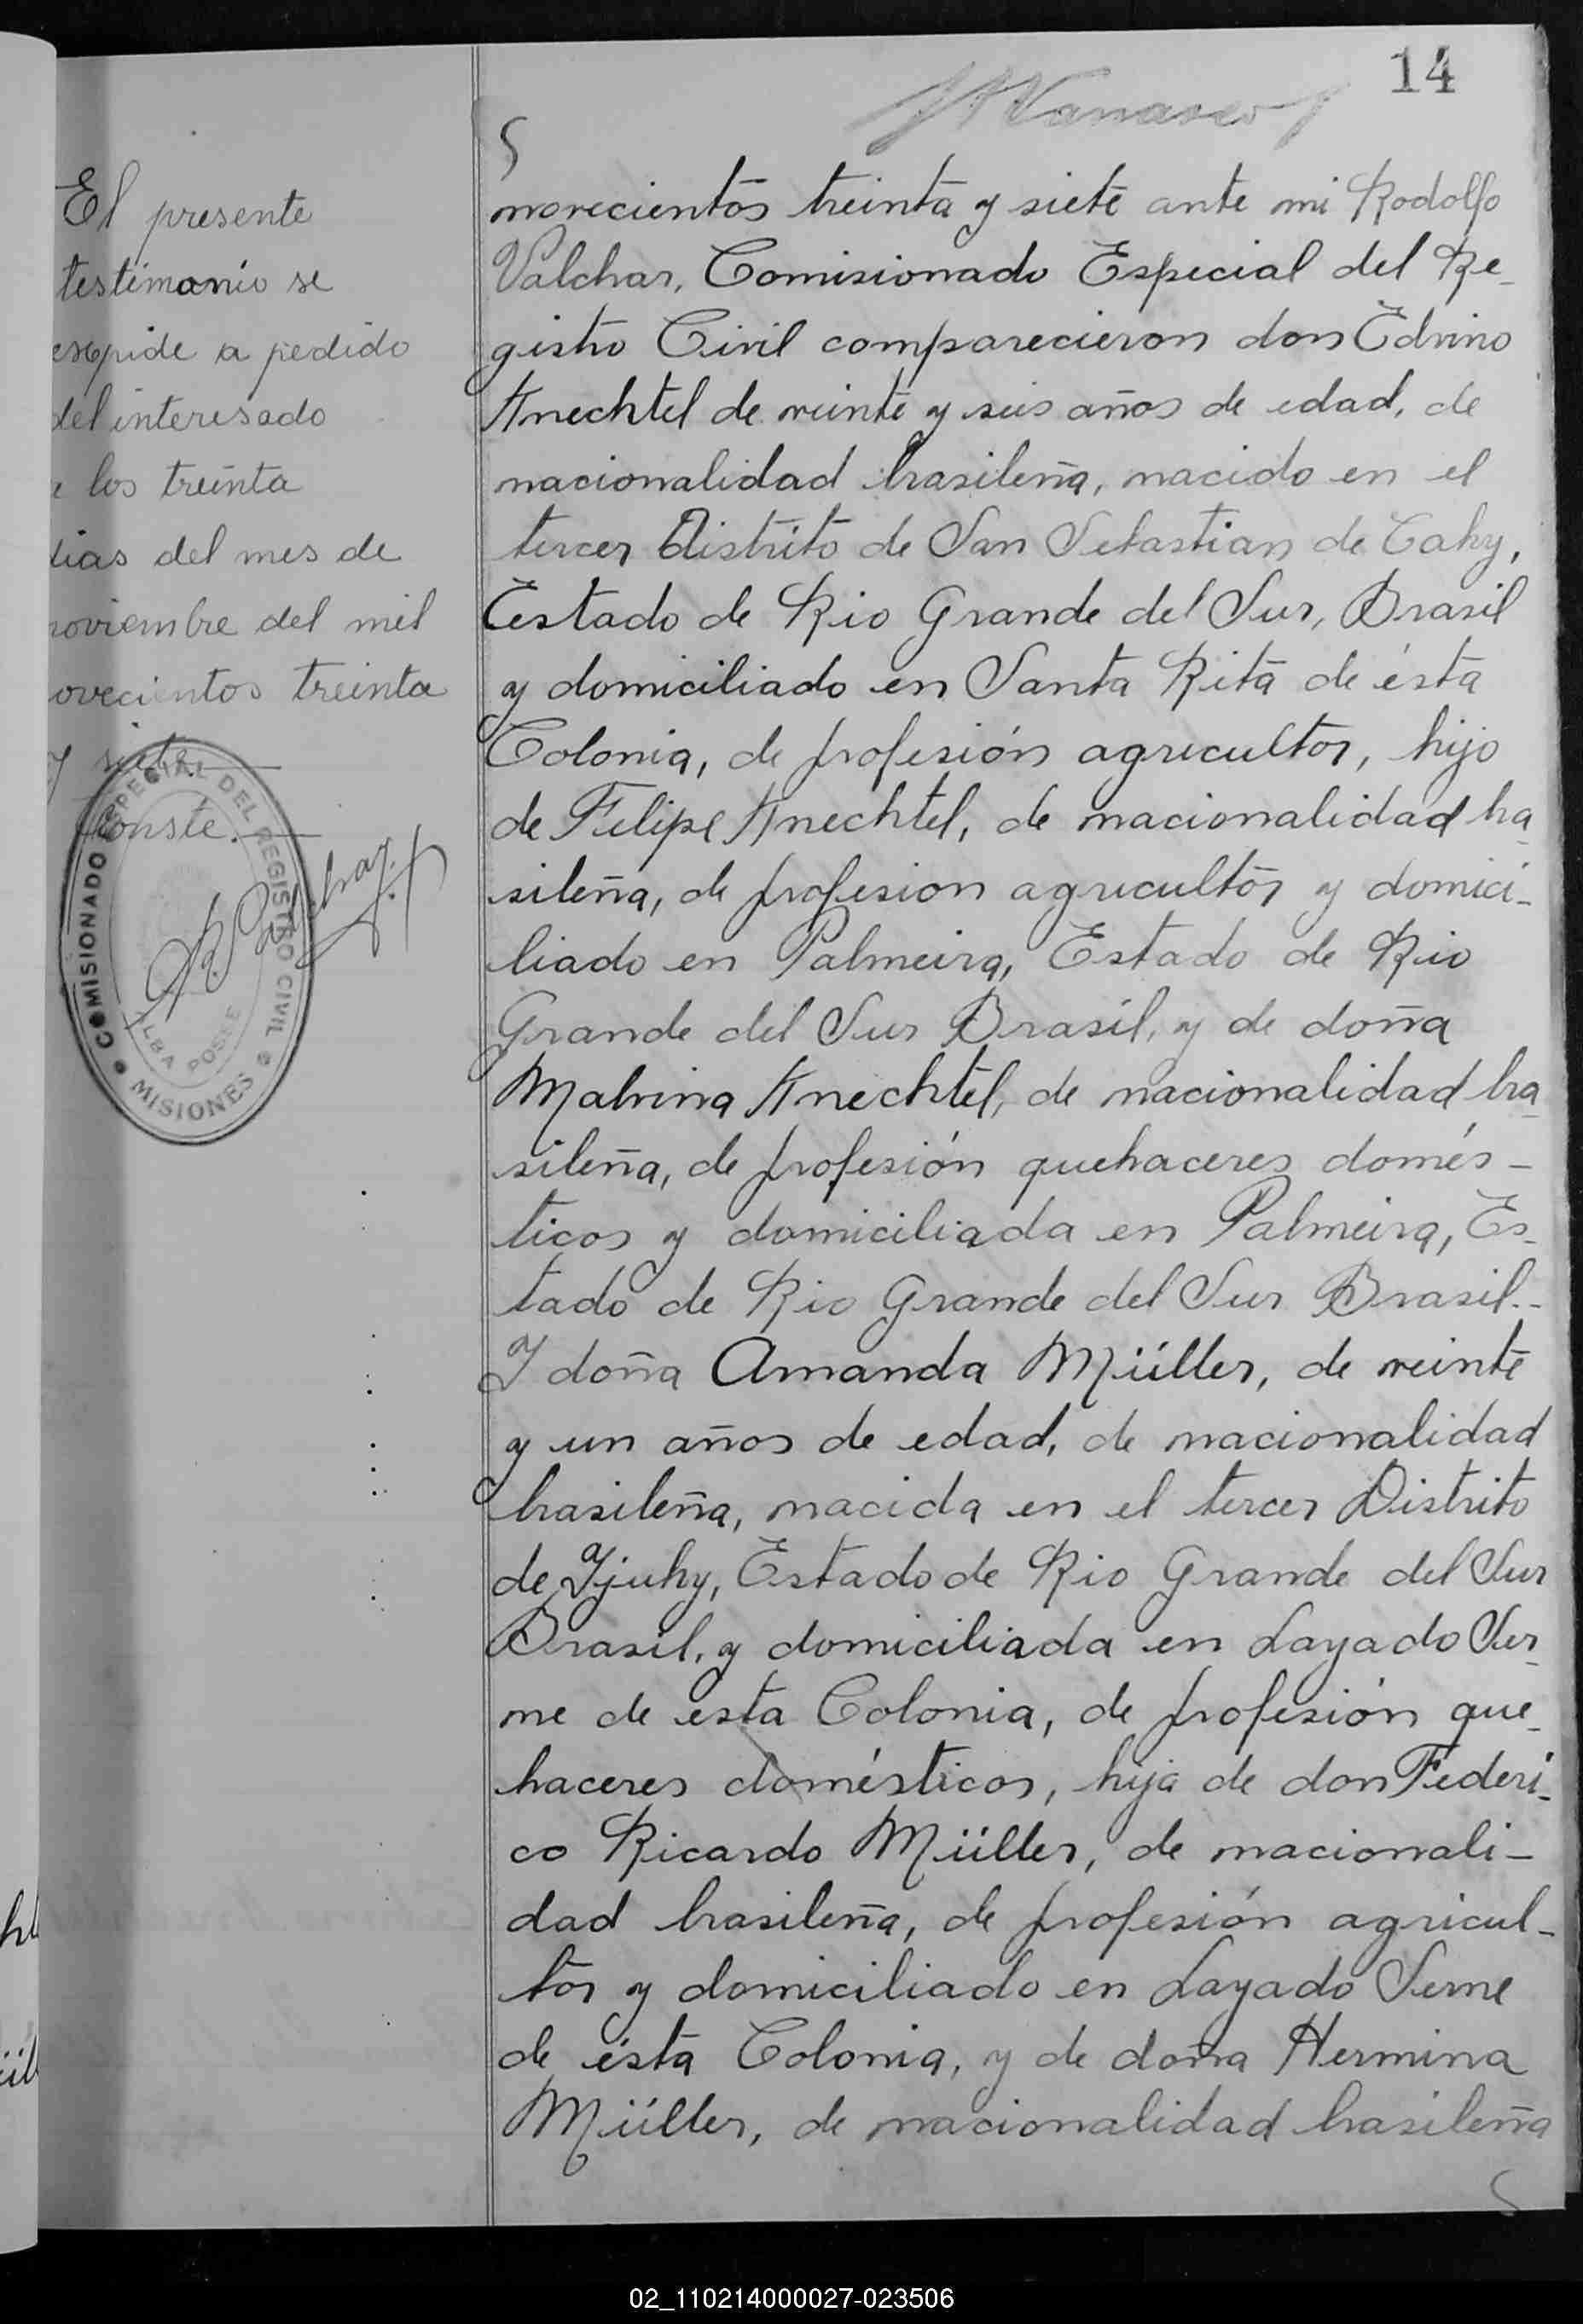 14
El presente
testimonio se
expide a pedido
del interesado
a los treinta
dias del mes de
noviembre del mil
novecientos treinta
y siete.
Conste.
COMISIONADO ESPECIAL DEL REGISTRO CIVIL
ALBA POSSE
MISIONES
novecientos treinta y siete ante mi Rodolfo
Valchar, Comisionado Especial del Re-
gistro Civil comparecieron don Edvino
Knechtel de veinte y seis años de edad, de
nacionalidad brasileña, nacido en el
tercer Distrito de San Sebastian de Cahy,
Estado de Rio Grande del Sur, Brasil
y domiciliado en Santa Rita de ésta
Colonia, de profesión agricultor, hijo
de Felipe Knechtel, de nacionalidad bra
sileña, de profesion agricultor y domici-
liado en Palmeira, Estado de Rio
Grande del Sur Brasil, y de doña
Malvina Knechtel, de nacionalidad bra
sileña, de profesión quehaceres domés-
ticos y domiciliada en Palmeira, Es-
tado de Rio Grande del Sur Brasil.-
Y doña Amanda Müller, de veinte
y un años de edad, de nacionalidad
brasileña, nacida en el tercer Distrito
de Yjuhy, Estado de Rio Grande del Sur
Brasil, y domiciliada en Layado Ser-
me de esta Colonia, de profesión que-
haceres domésticos, hija de don Federi-
co Ricardo Müller, de nacionali-
dad brasileña, de profesión agricul-
tor y domiciliado en Layado Serme
de ésta Colonia, y de doña Hermina
Müller, de nacionalidad brasileña
02_110214000027-023506